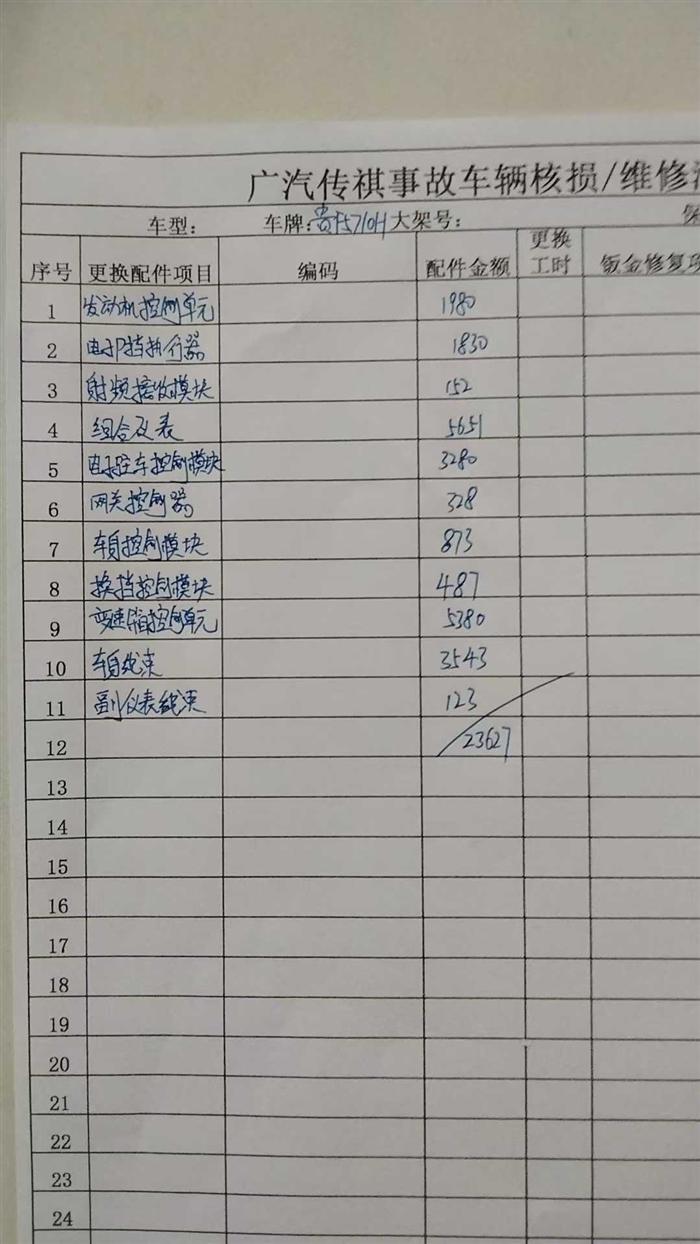 广汽传祺事故车辆核损/维修
车型： 车牌：贵F5710H 大架号：
序号 更换配件项目 编码 配件金额 更换工时 钣金修复项
1 发动机控制单元 1980
2 电子P挡执行器 1830
3 射频接收模块 152
4 组合仪表 5651
5 电子驻车控制模块 3280
6 网关控制器 328
7 车身控制模块 873
8 换挡控制模块 487
9 变速箱控制单元 5380
10 车身线束 3543
11 副仪表线束 123
12 23627
13
14
15
16
17
18
19
20
21
22
23
24